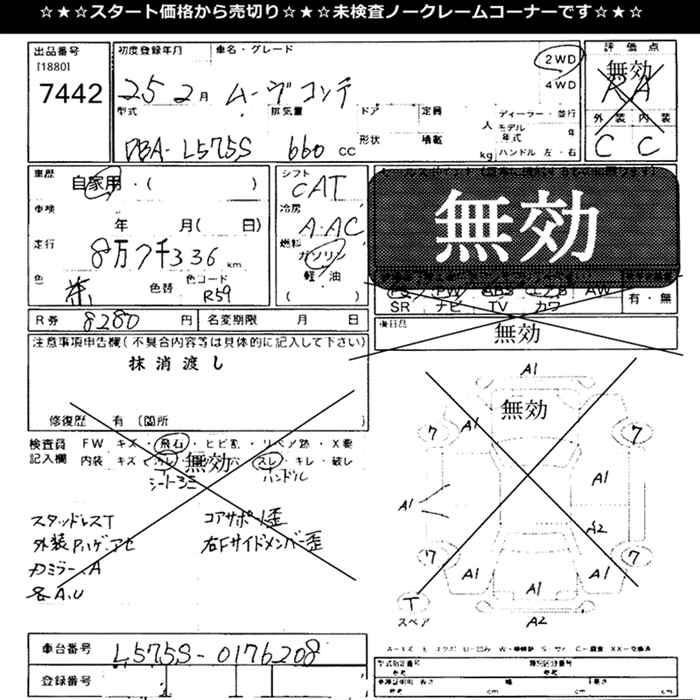 ☆★☆★スタート価格から売切り☆★☆★未検査ノークレームコーナーです☆★☆
出品番号 初度登録年月 車名・グレード 評価点
[1880] 2WD 無効
7442 25 2月 ムーヴコンテ 4WD RA
型式 排気量 ドア 定員 ディーラー・並行 外装 内装
人 モデル年式 年
DBA-L575S 660cc 形状 積載 kg ハンドル 左・右 C C
車歴 自家用・( ) シフト CAT
車検 年 月( 日) 冷房 A・AC 無効
走行 8万7千336km 燃料 ガソリン
色 茶 色替 色コード R59 軽・油
( ) PS PW ABS エアB AW 有・無
SR ナビ TV カワ
R券 8280円 名変期限 月 日 無効
注意事項申告欄(不具合内容等は具体的に記入して下さい)
抹消渡し
修復歴 有 〔箇所
検査員記入欄 FW キズ・飛石・ヒビ割・リペア跡・X要
内装 キズ 穴 スレ・キレ・破レ
無効
シートヨゴレ ハンドル
スタッドレスT コアサポート歪
外装 右Fサイドメンバー歪
カミラーA
各A,U
無効
A1
7 A1 7
A1 A1
A2
7 7
A1 A1 A1
T
スペア A2
車台番号 L575S-0176208
登録番号
型式指定番号 類別区分番号
参考 参考
車検証明記 長さ 幅 高さ
参考 cm cm cm